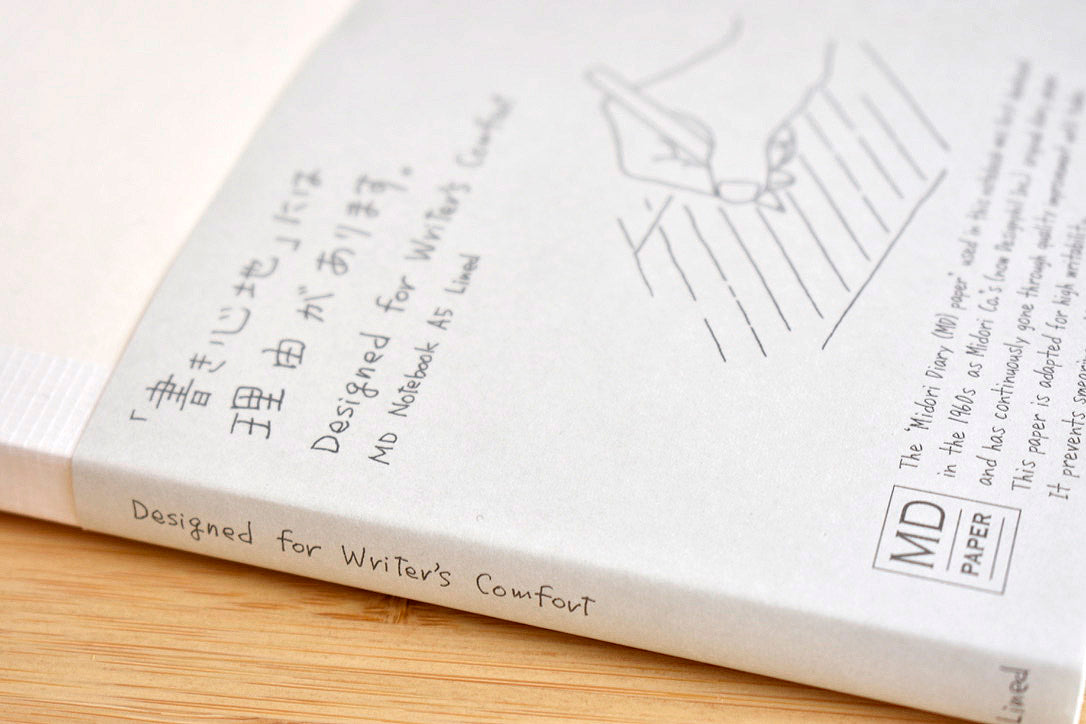 「書き心地」には
理由があります。
Designed for Writer's Comfort
MD Notebook A5 Lined
The "Midori Diary (MD) paper" used in this notebook was first
in the 1960s as Midori Co.'s (now Designphil Inc) original diary
and has continuously gone through quality improvement until
This paper is adapted for high writability
It prevents smearing
MD
PAPER
Designed for Writer's Comfort
Lined